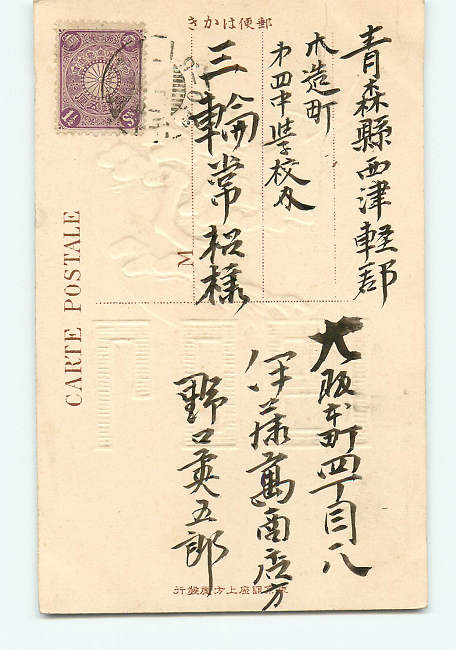 郵便はかき
青森縣西津軽郡
木造町
第四中学校内
三輪常松様
大阪本町四丁目八
伊藤萬商店方
野口英五郎
CARTE POSTALE
M
1½ Sn
上方屋發行